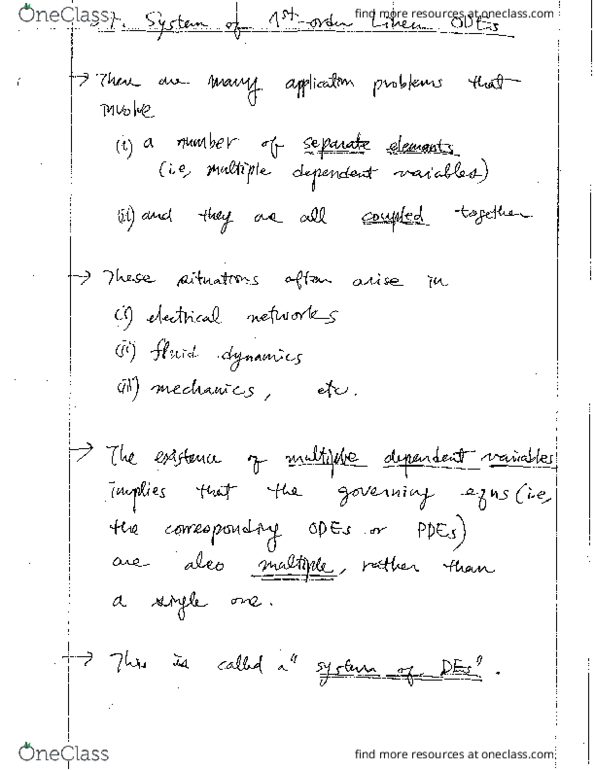 OneClass
find more resources at oneclass.com
7. System of 1st-order Linear ODEs
find more resources at oneclass.com
→ There are many application problems that
involve
(i) a number of separate elements
(i.e, multiple dependent variables)
(ii) and they are all coupled together
→ These situations often arise in
(i) electrical networks
(ii) fluid dynamics
(iii) mechanics, etc.
→ The existence of multiple dependent variables
implies that the governing eqns (i.e,
the corresponding ODEs or PDEs)
are also multiple, rather than
a single one.
→ This is called a "system of DEs".
OneClass
find more resources at oneclass.com